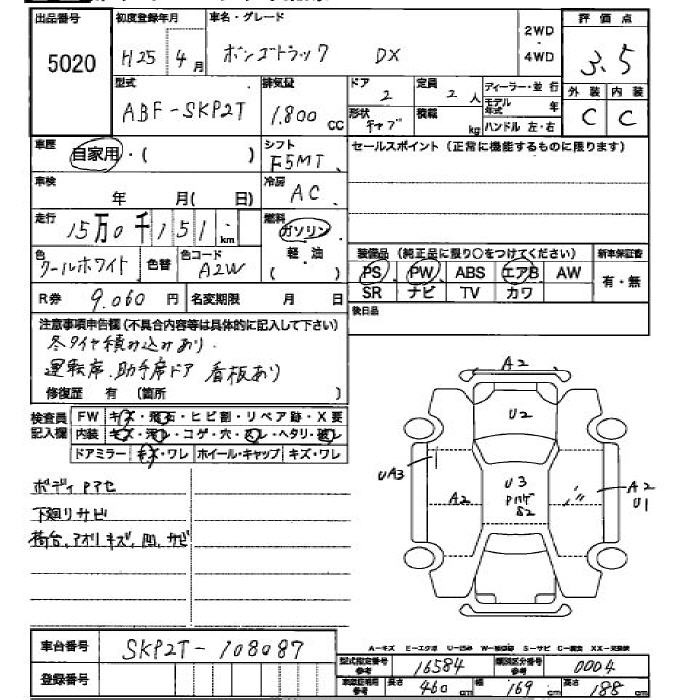 出品番号 初度登録年月 車名・グレード 2WD 評価点
5020 H25 4月 ボンゴトラック DX ・ 4WD 3.5
型式 排気量 ドア 定員 ディーラー・並行 外装 内装
ABF-SKP2T 1.800cc 2 2人 モデル年式 年 C C
形状 キャブ 積載 kg ハンドル 左・右
車歴 自家用・( ) シフト F5MT セールスポイント(正常に機能するものに限ります)
車検 年 月(日) 冷房 AC
走行 15万0千151km 燃料 ガソリン・軽油・( )
色 クールホワイト 色替 色コード A2W 装備品(純正品に限り○をつけてください) 新車保証書
PS PW ABS エアB AW 有・無
R券 9.060円 名変期限 月 日 SR ナビ TV カワ
後日品
注意事項申告欄(不具合内容等は具体的に記入して下さい)
冬タイヤ積み込みあり.
運転席.助手席ドア 看板あり
修復歴 有 (箇所 )
検査員記入欄 FW キズ・飛石・ヒビ割・リペア跡・X要
内装 キズ・汚レ・コゲ・穴・スレ・ヘタリ・破レ
ドアミラー キズ・ワレ ホイール・キャップ キズ・ワレ
ボディPアセ
下廻リサビ
荷台.アオリキズ,凹.サビ
A2
U2
UA3
A2
U3
Pハゲ
S2
A2
U1
A-キズ E-エクボ U-凹み W-補修跡 S-サビ C-腐食 XX-交換済
車台番号 SKP2T-108087
型式指定番号 参考 16584 類別区分番号 参考 0004
登録番号 長さ 460cm 幅 169cm 高さ 188cm